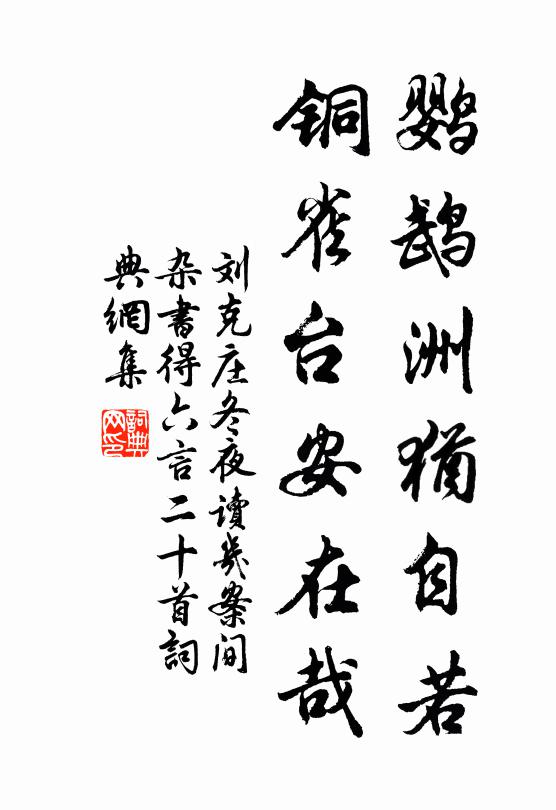 鹦鹉洲犹自若
铜雀台安在哉
刘克庄冬夜讀幾案间
杂書得六言二十首詞
典網集
詞典网印